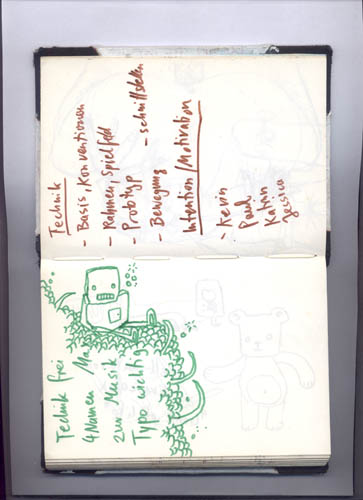 Technik frei
4 Namen /
zur Musik
Typo wichtig
Technik
- Basis, Konventionen
- Rahmen, Spielfeld
- Prototyp
- schnittstellen
- Bewegung
Intention / Motivation
- Kevin
Paul
Katrin
Jessica